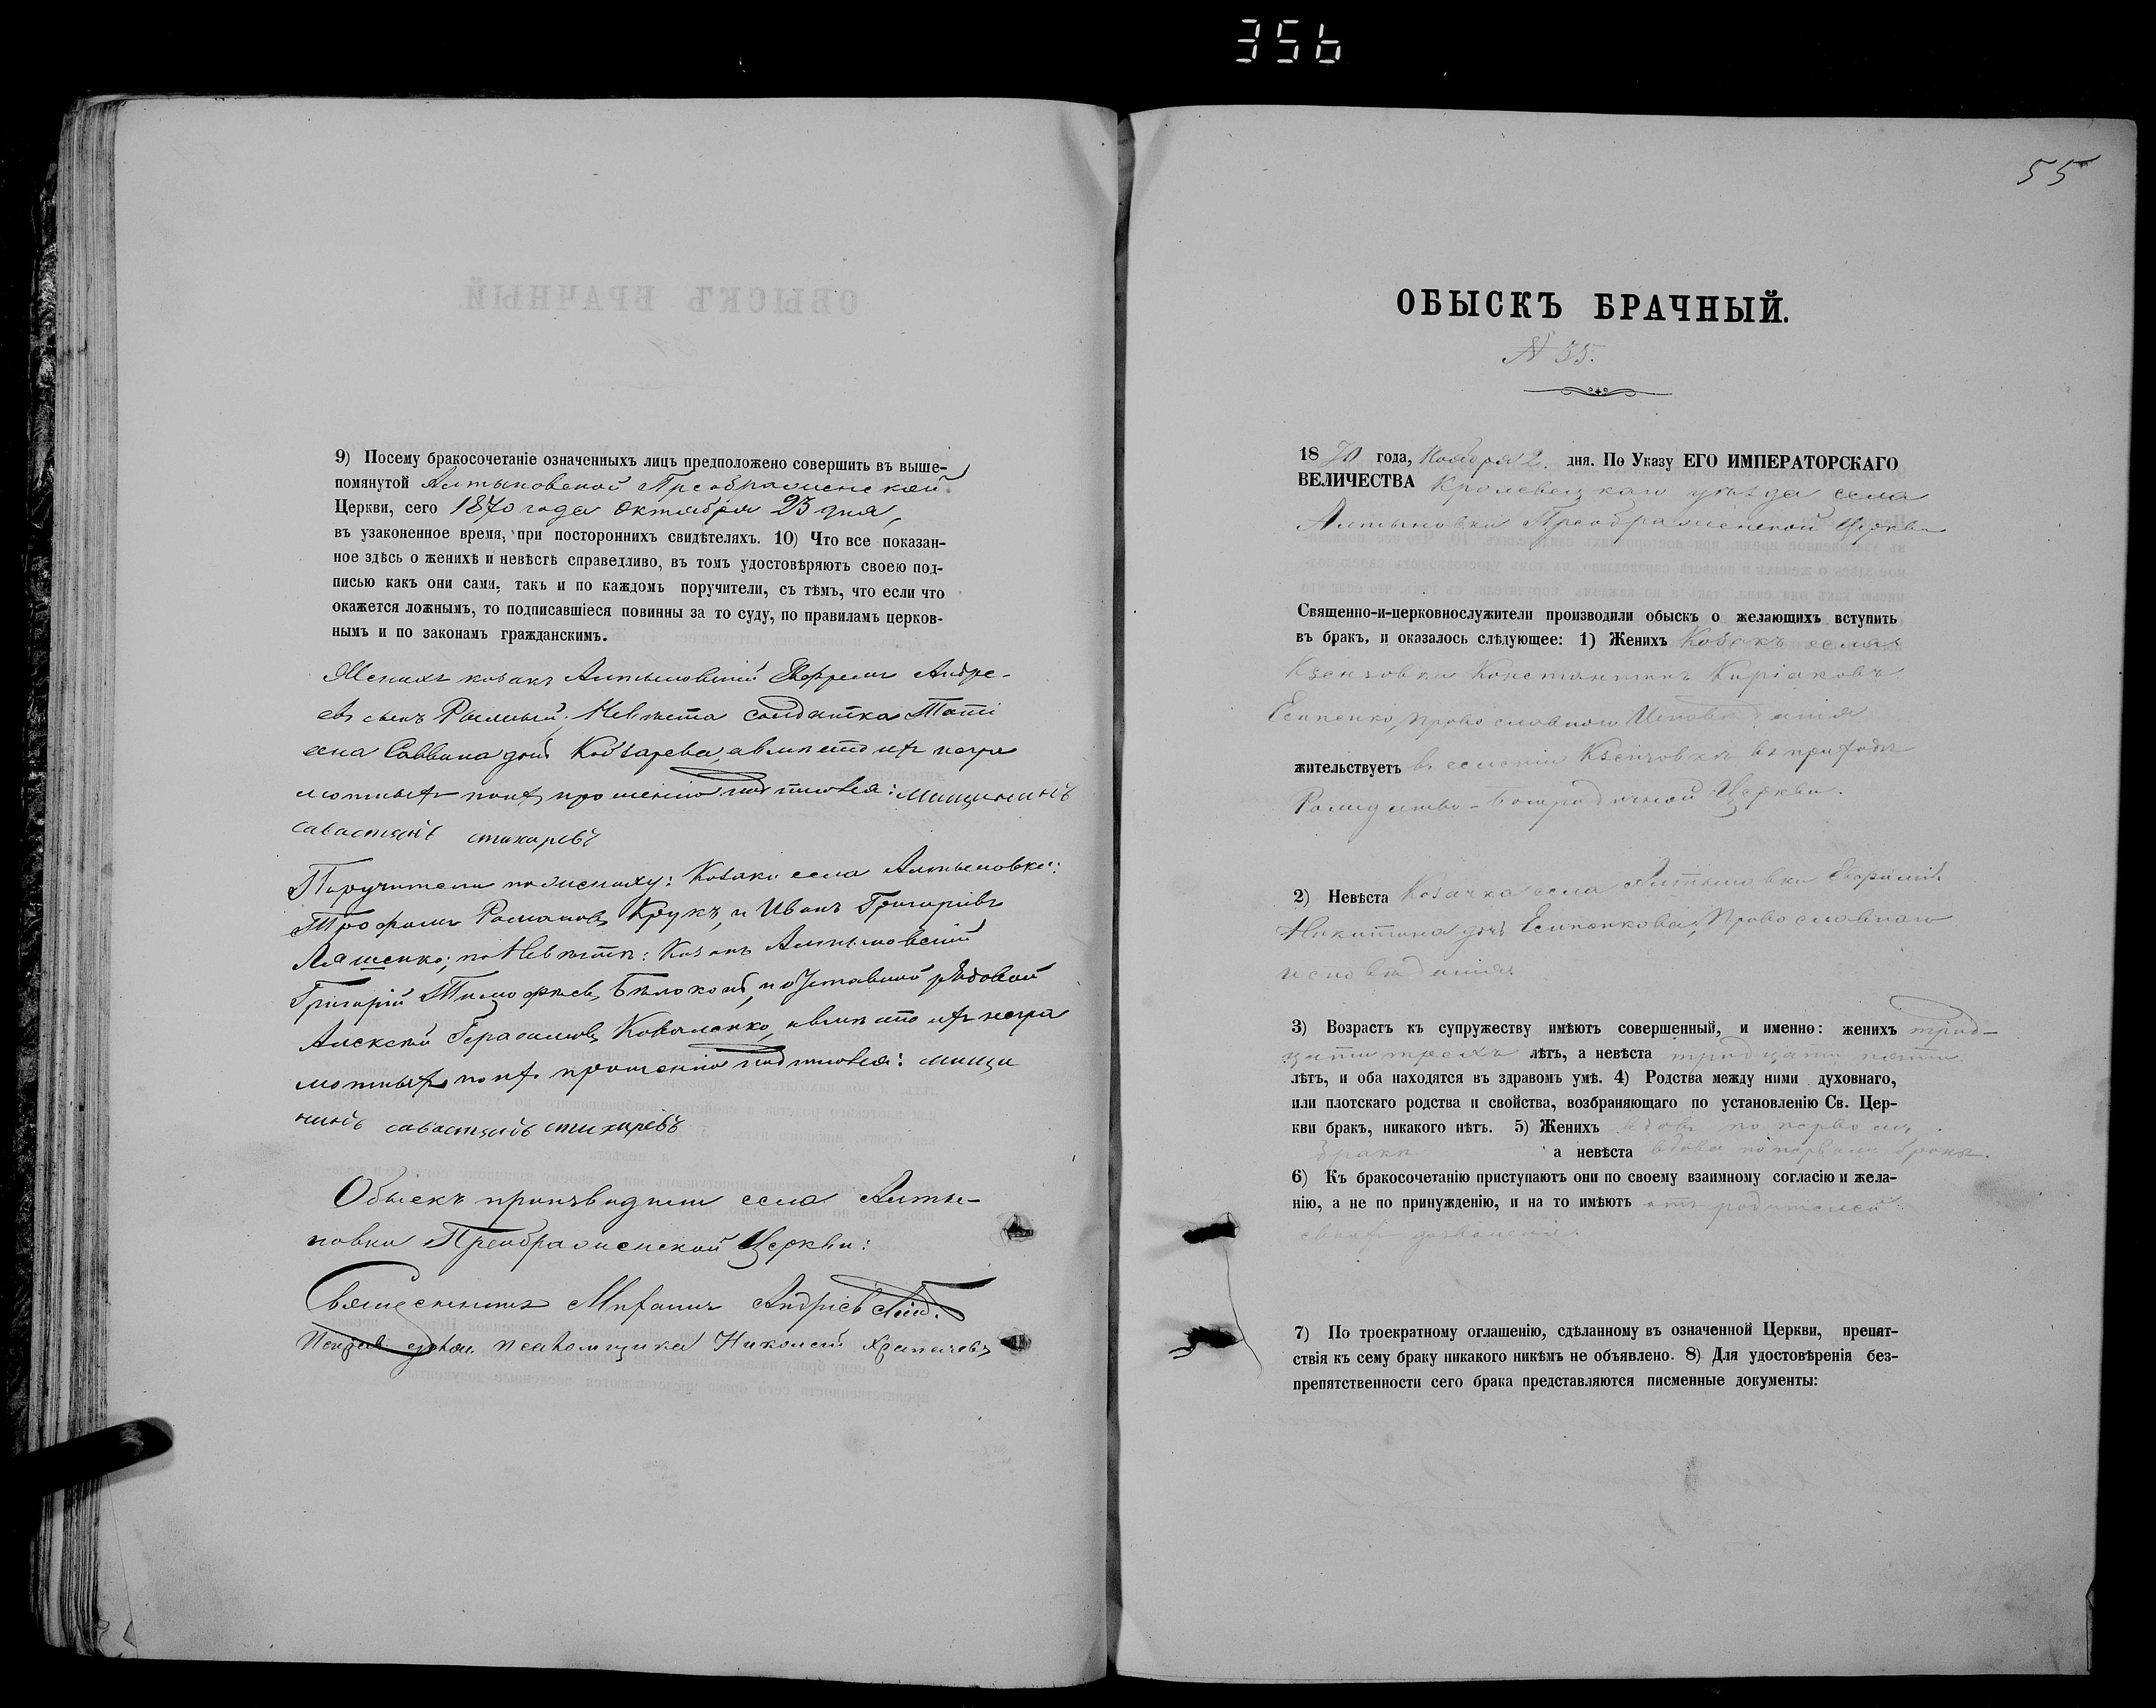 356
9) Посему бракосочетаніе означенныхъ лицъ предположено совершить въ выше-
помянутой Алтыновской Преображенской
Церкви, сего 1870 года Октября 23 дня,
въ узаконенное время, при постороннихъ свидѣтеляхъ. 10) Что все показан-
ное здѣсь о женихѣ и невѣстѣ справедливо, въ томъ удостовѣряютъ своею под-
писью какъ они сами, такъ и по каждомъ поручители, съ тѣмъ, что если что
окажется ложнымъ, то подписавшіеся повинны за то суду, по правиламъ церков-
нымъ и по законамъ гражданскимъ.
Женихъ козакъ Алтыновскій Андре-
евъ сынъ Невѣста солдатка Тати
Саввина а вмѣсто ихъ негра
мотныхъ по ихъ прошенію подписался: мищининъ
савастянъ стихаревъ
Поручители по жениху: Козаки села Алтыновки:
Трофимъ Романовъ Крукъ, и Иванъ Григоріевъ
Ляшенко; по Невѣстѣ: Козакъ Алтыновскій
Григорій Тимофѣевъ Бѣлоконь, и рядовой
Алексѣй Герасимовъ Коваленко, а вмѣсто ихъ негра
мотныхъ по ихъ прошенію подписался: мищи
нинъ савастянъ стихиревъ
Обыскъ производили села Алты-
новки Преображенской Церкви:
Священникъ Андріевскій.
псаломщика Николай
55
ОБЫСКЪ БРАЧНЫЙ.
№ 55.
18 70 года, Ноября 2. дня. По Указу ЕГО ИМПЕРАТОРСКАГО
ВЕЛИЧЕСТВА Кролевецкаго уѣзда села
Алтыновки Преображенской Церкви
Священно-и-церковнослужители производили обыскъ о желающихъ вступить
въ бракъ, и оказалось слѣдующее: 1) Женихъ Козакъ села
Константинъ Киріаковъ
Есипенко, православного Исповѣданія
жительствуетъ въ селеніи въ приходѣ
Рождество-Богородичной Церкви.
2) Невѣста Козачка села Алтыновки
Никитина дочь Есипенкова, Православнаго
исповѣданія.
3) Возрастъ къ супружеству имѣютъ совершенный, и именно: женихъ трид-
цати трехъ лѣтъ, а невѣста тридцати пяти
лѣтъ, и оба находятся въ здравомъ умѣ. 4) Родства между ними духовнаго,
или плотскаго родства и свойства, возбраняющаго по установленію Св. Цер-
кви бракъ, никакого нѣтъ. 5) Женихъ вдовъ по первомъ
бракѣ а невѣста вдова по первомъ бракѣ.
6) Къ бракосочетанію приступаютъ они по своему взаимному согласію и жела-
нію, а не по принужденію, и на то имѣютъ отъ родителей
своихъ дозволеніе.
7) По троекратному оглашенію, сдѣланному въ означенной Церкви, препят-
ствія къ сему браку никакого никѣмъ не объявлено. 8) Для удостовѣренія без-
препятственности сего брака представляются писменные документы: